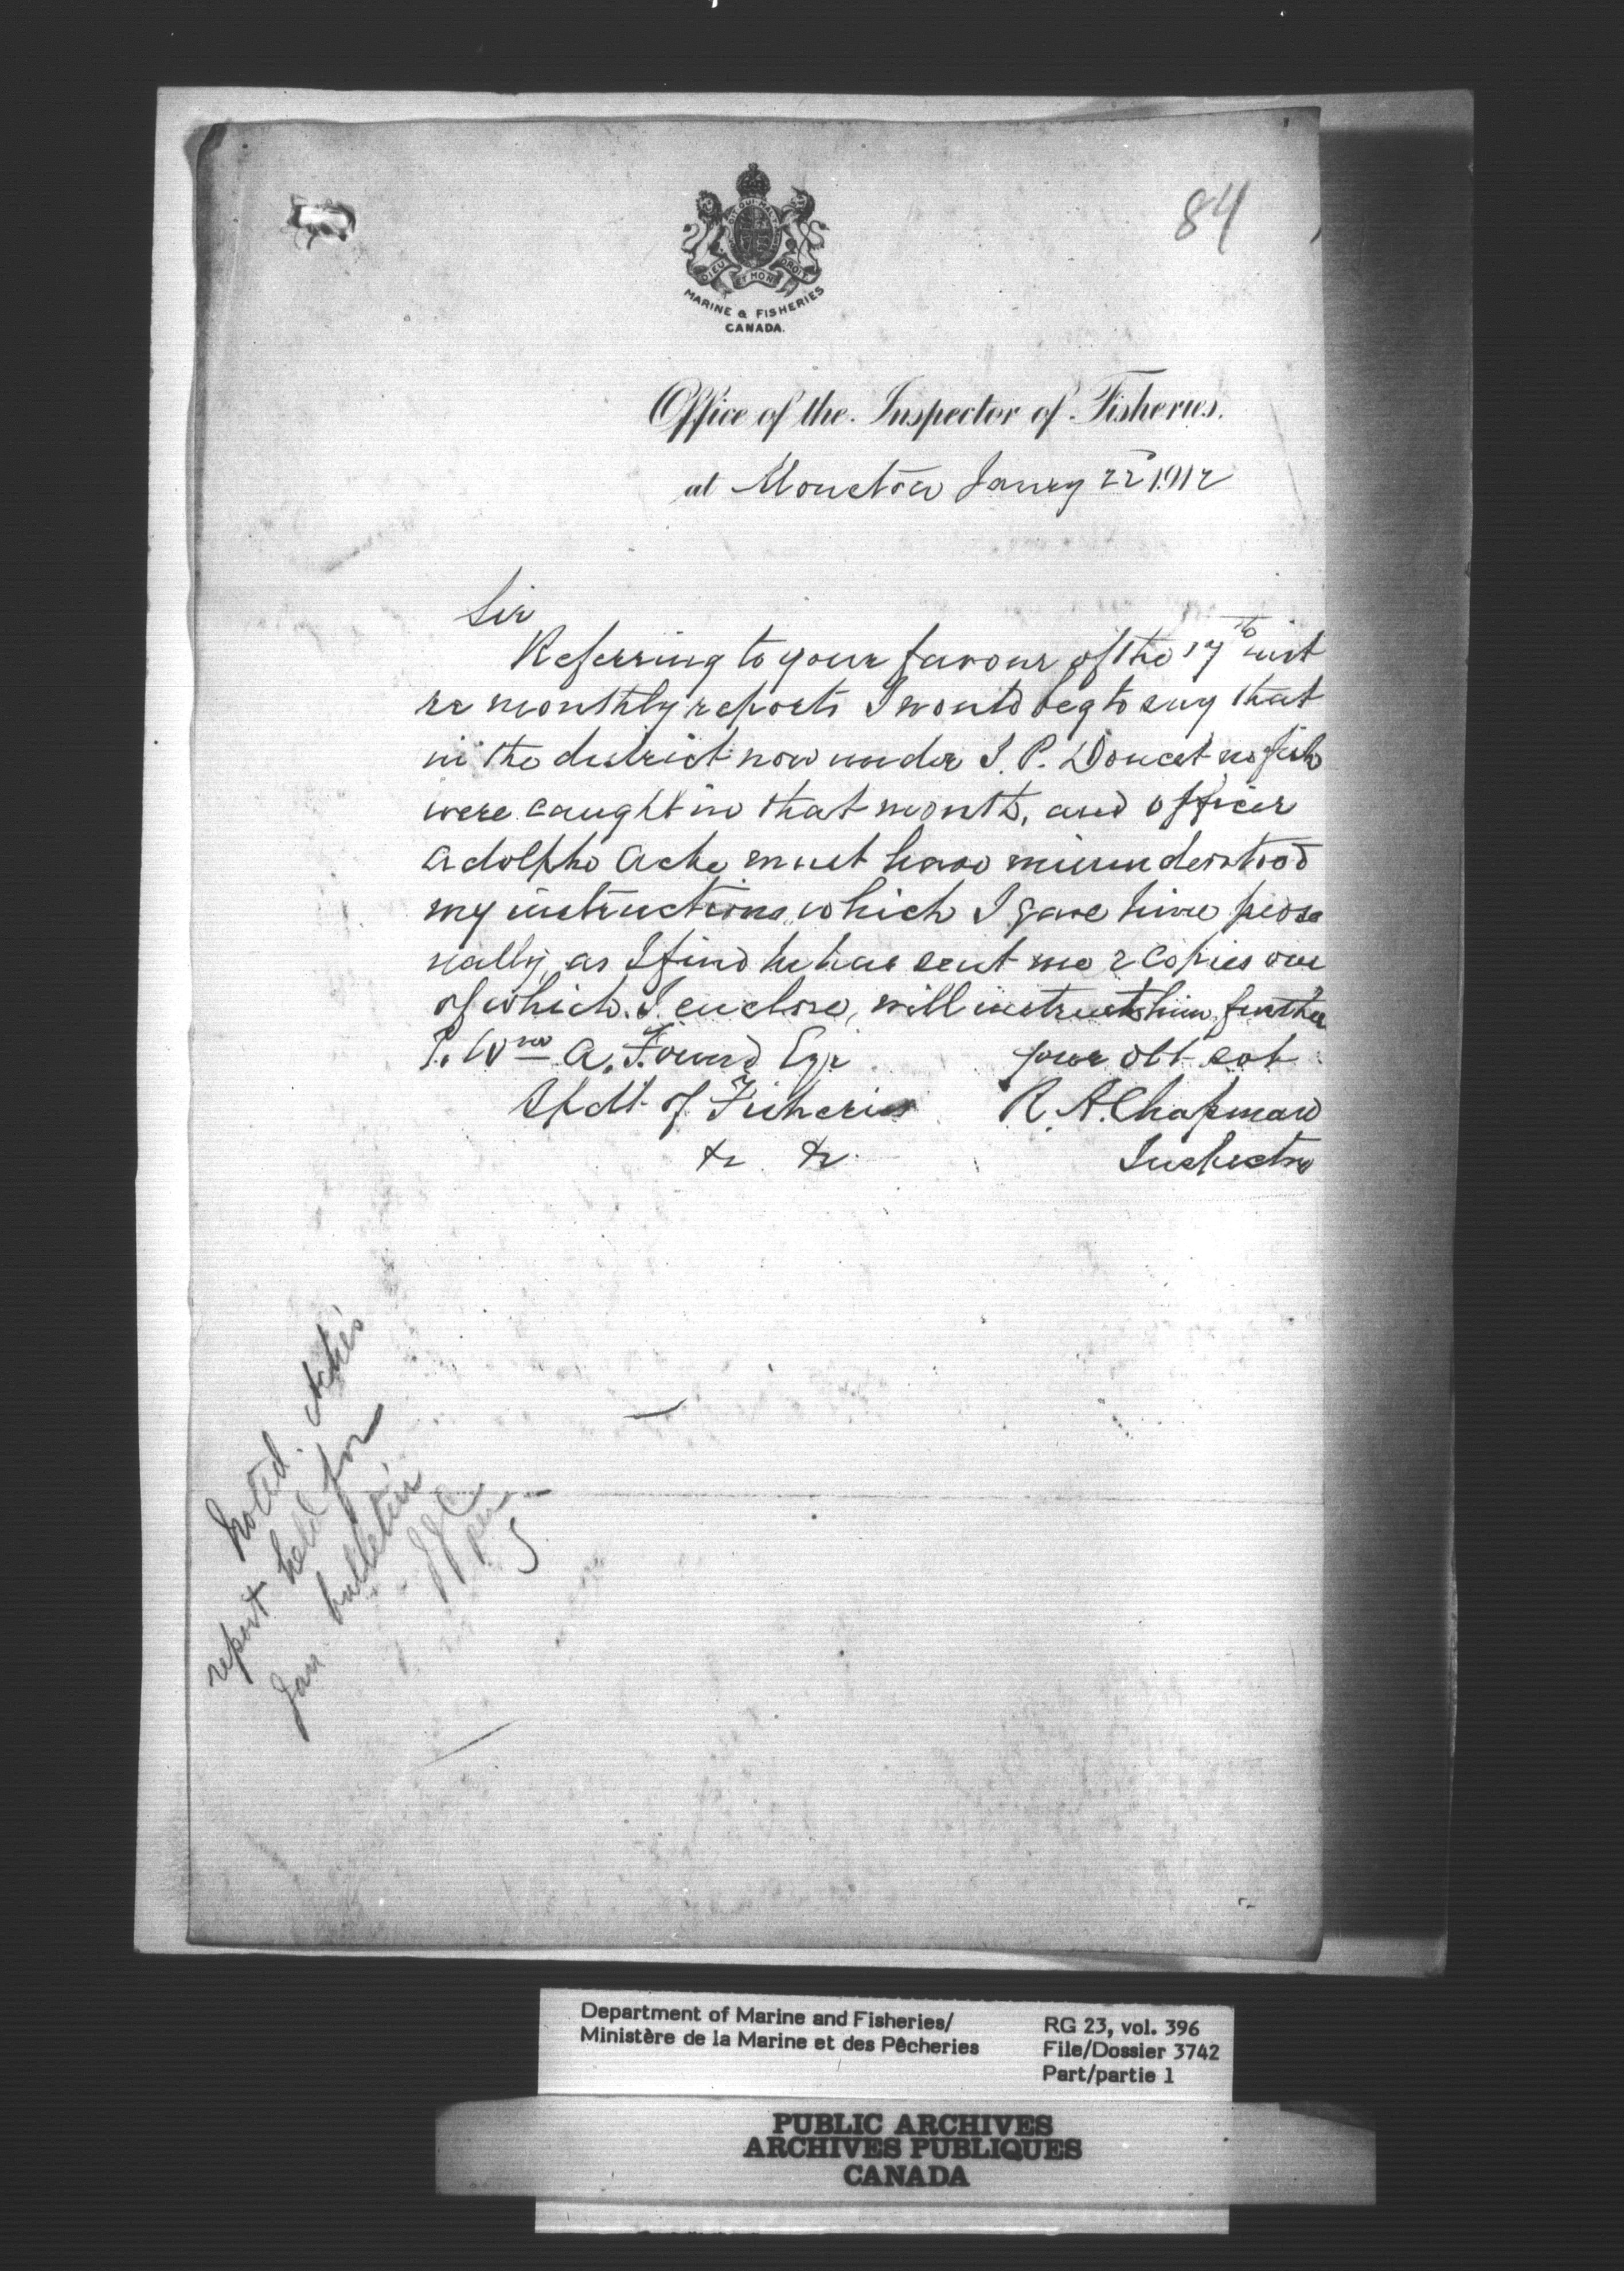 84
DIEU ET MON DROIT
MARINE & FISHERIES
CANADA.
Office of the Inspector of Fisheries.
at Moncton Janry 22 1912
Sir
Referring to your favour of the 17th inst
re monthly reports I would beg to say that
in the district now under J. P. Doucet no fish
were caught in that month, and officer
Adolphe Ache must have misunderstood
my instructions, which I gave him perso
nally, as I find he has sent me 2 copies one
of which I enclose, will instruct him further
Wm A. Found Esqr your obt svt
Spdt of Fisheries R. A. Chapman
&c &c Inspector
Noted. Ache's
report held for
Jan bulletin
JJC
per
S
Department of Marine and Fisheries/
Ministère de la Marine et des Pêcheries
RG 23, vol. 396
File/Dossier 3742
Part/partie 1
PUBLIC ARCHIVES
ARCHIVES PUBLIQUES
CANADA